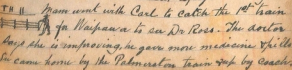 Mam went with Carl to catch the 1st train
for Waipawa to see Dr Ross. The doctor
says she is improving, he gave more medicine & pills
came home by the Palmerston train & up by coach